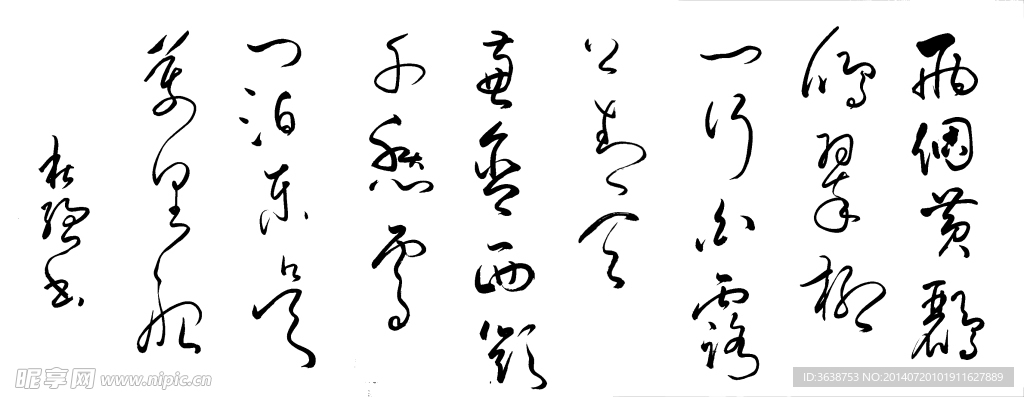 兩個黃鸝
鳴翠柳
一行白露
上青天
窗含西嶺
千秋雪
門泊東吳
萬里船
书
昵享网 www.nipic.cn
ID:3638753 NO:20140720101911627889